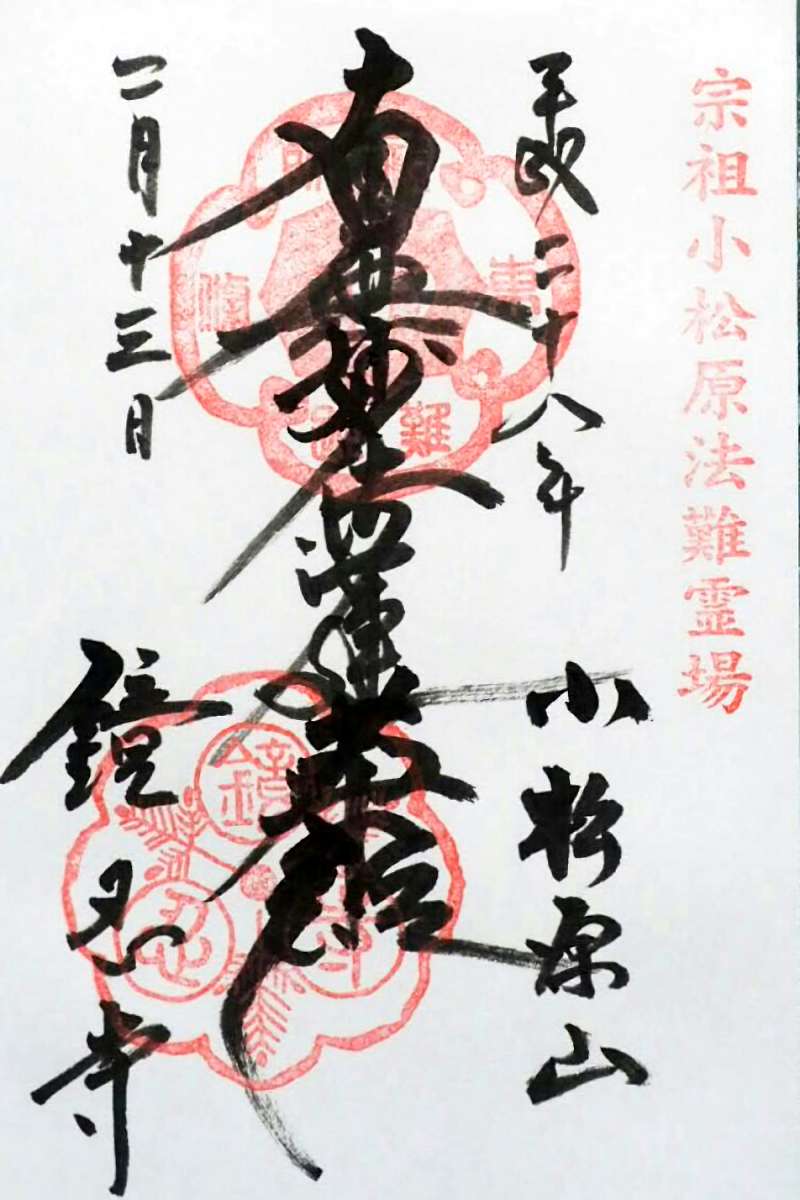 宗祖小松原法難霊場
平成二十八年
小松原山
南無妙法蓮華経
二月十三日
鏡忍寺
難
鏡
忍
寺